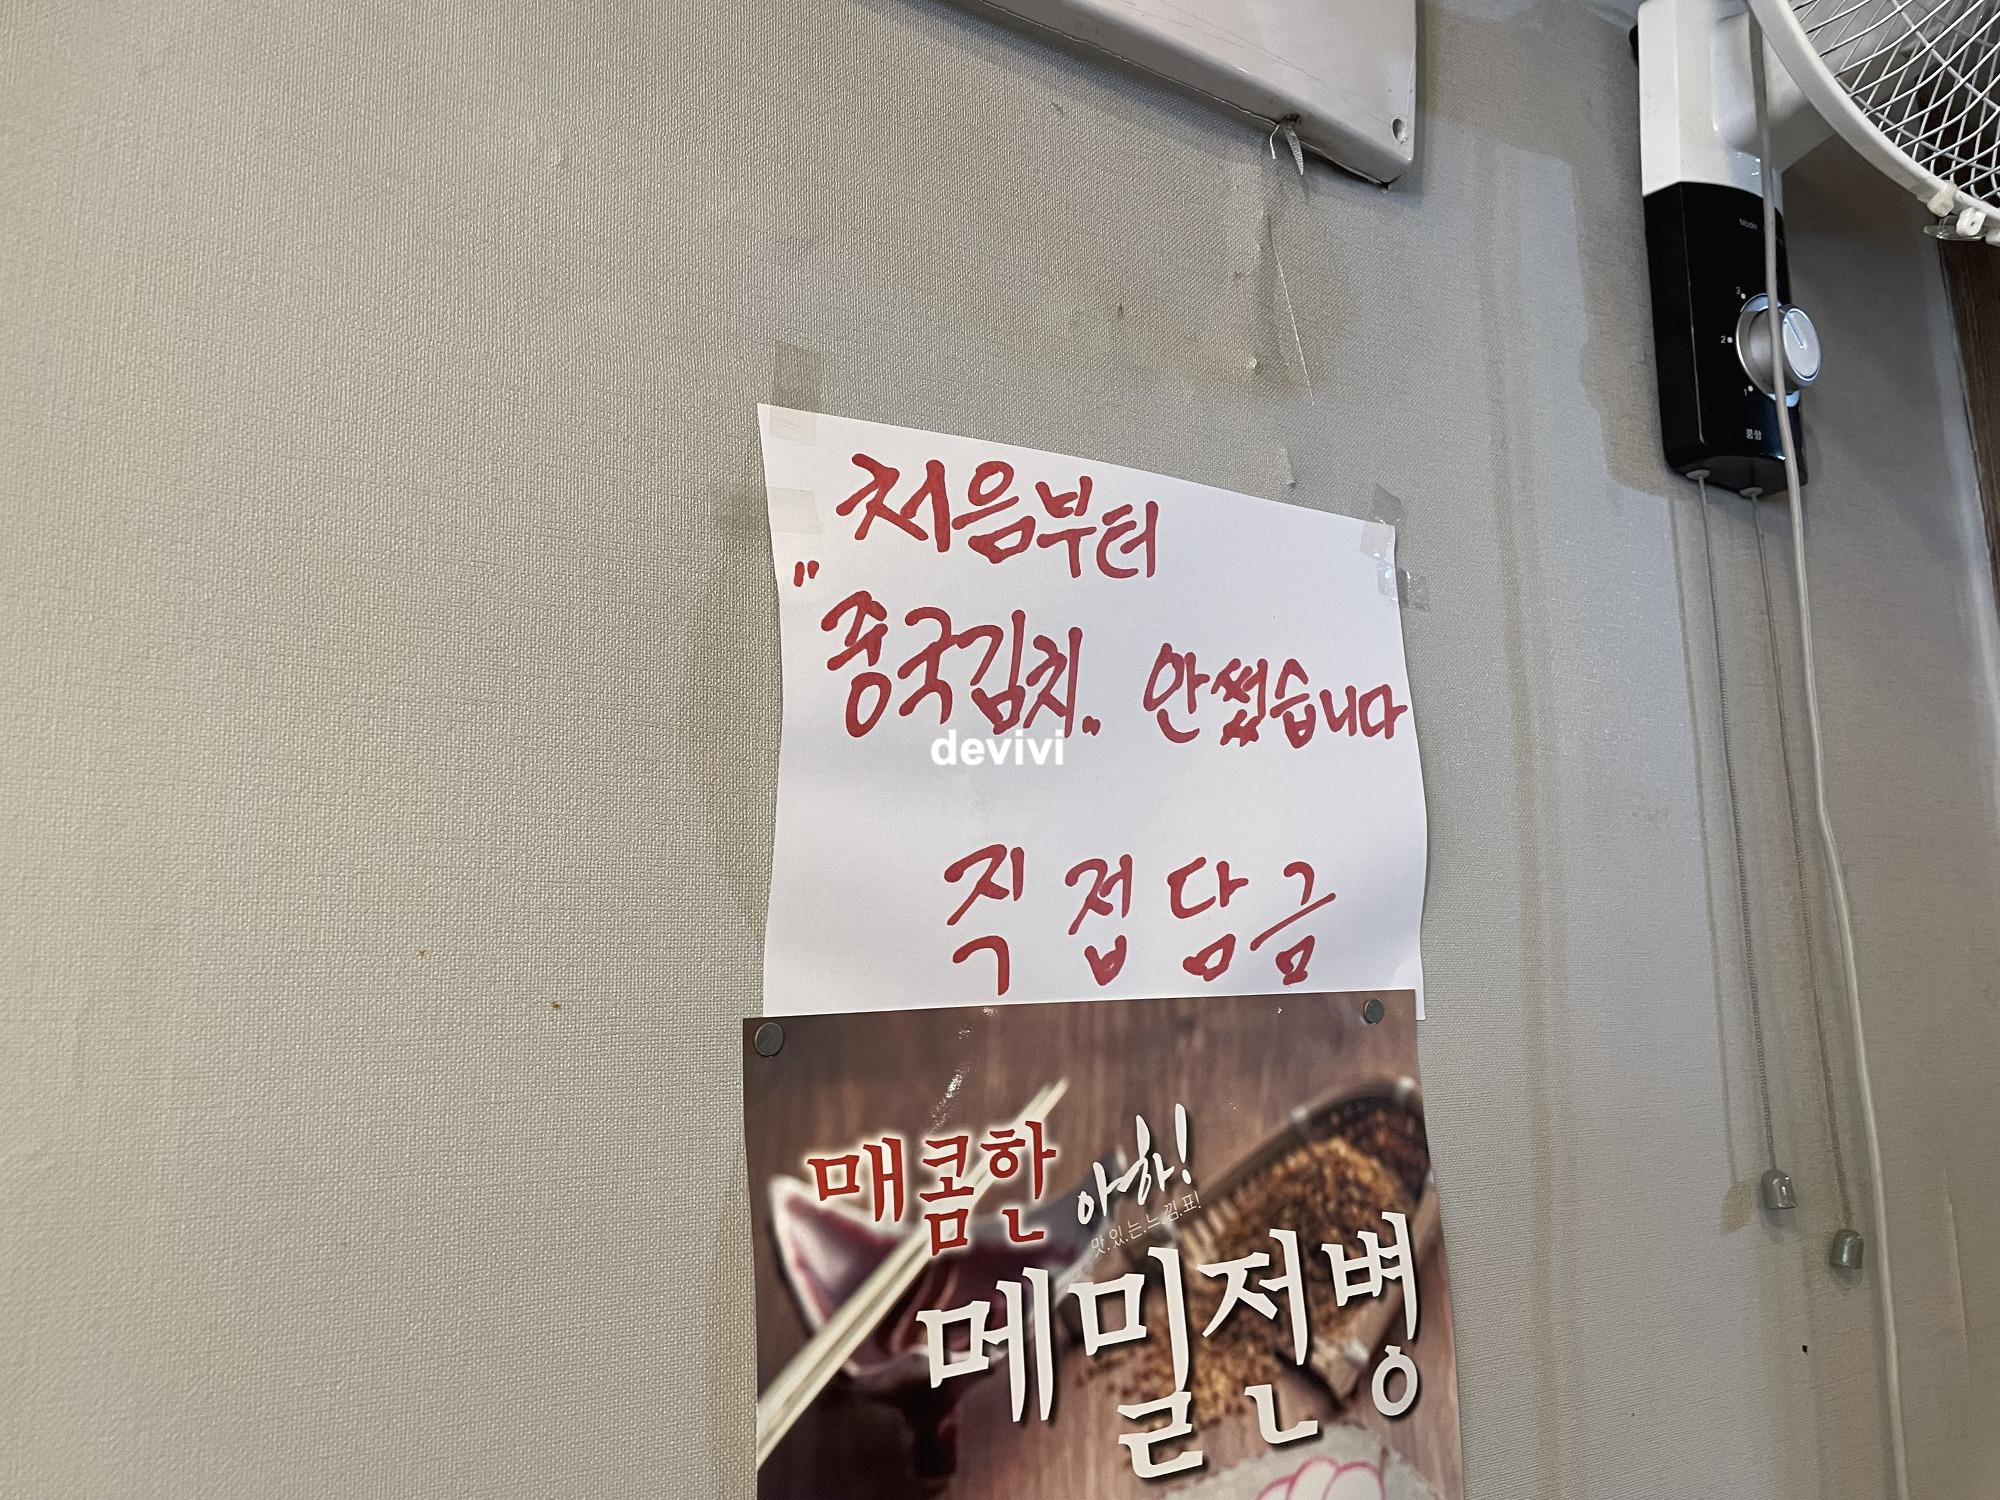 처음부터
"중국김치" 안썼습니다
직접담금
매콤한
아하!
맛.있.는.느.낌.표!
메밀전병
devivi
Mode
3
2
1